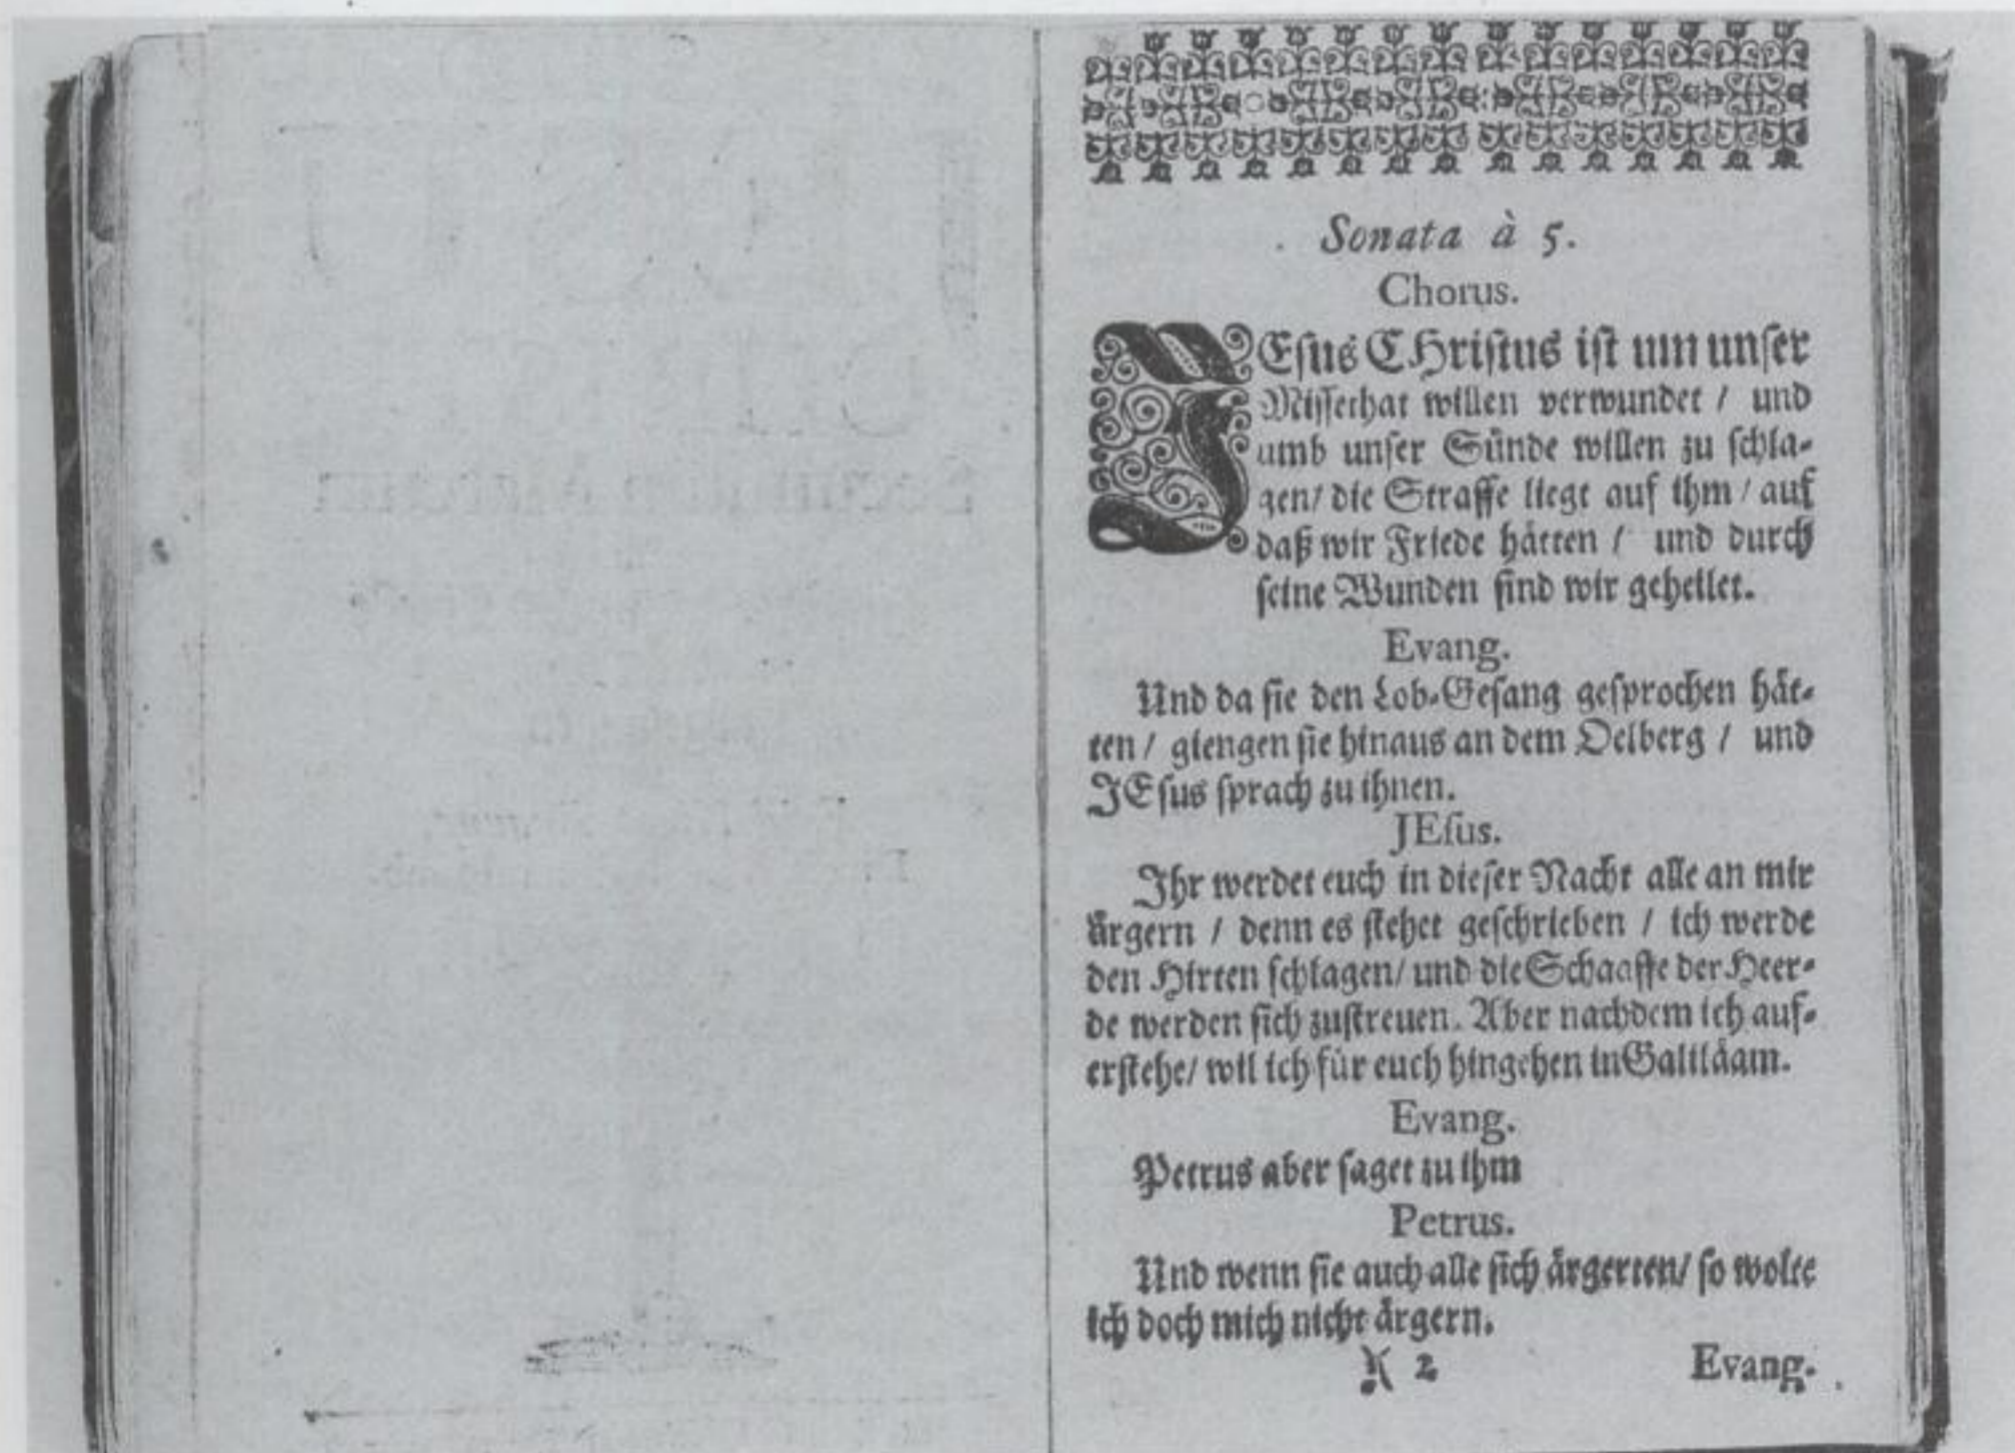 Sonata à 5.
Chorus.
JEſus CHriſtus iſt um unſer
Miſſethat willen verwundet / und
umb unſer Sünde willen zu ſchla-
gen/ die Straffe liegt auf ihm / auf
daß wir Friede hätten / und durch
ſeine Wunden ſind wir geheilet.
Evang.
Und da ſie den Lob-Geſang geſprochen hät-
ten / giengen ſie hinaus an dem Oelberg / und
JEſus ſprach zu ihnen.
JEſus.
Ihr werdet euch in dieſer Nacht alle an mir
ärgern / denn es ſtehet geſchrieben / ich werde
den Hirten ſchlagen/ und die Schaaffe der Heer-
de werden ſich zuſtreuen. Aber nachdem ich auf-
erſtehe/ wil ich für euch hingehen in Galiläam.
Evang.
Petrus aber ſaget zu ihm
Petrus.
Und wenn ſie auch alle ſich ärgerten/ ſo wolte
ich doch mich nicht ärgern.
2 Evang.